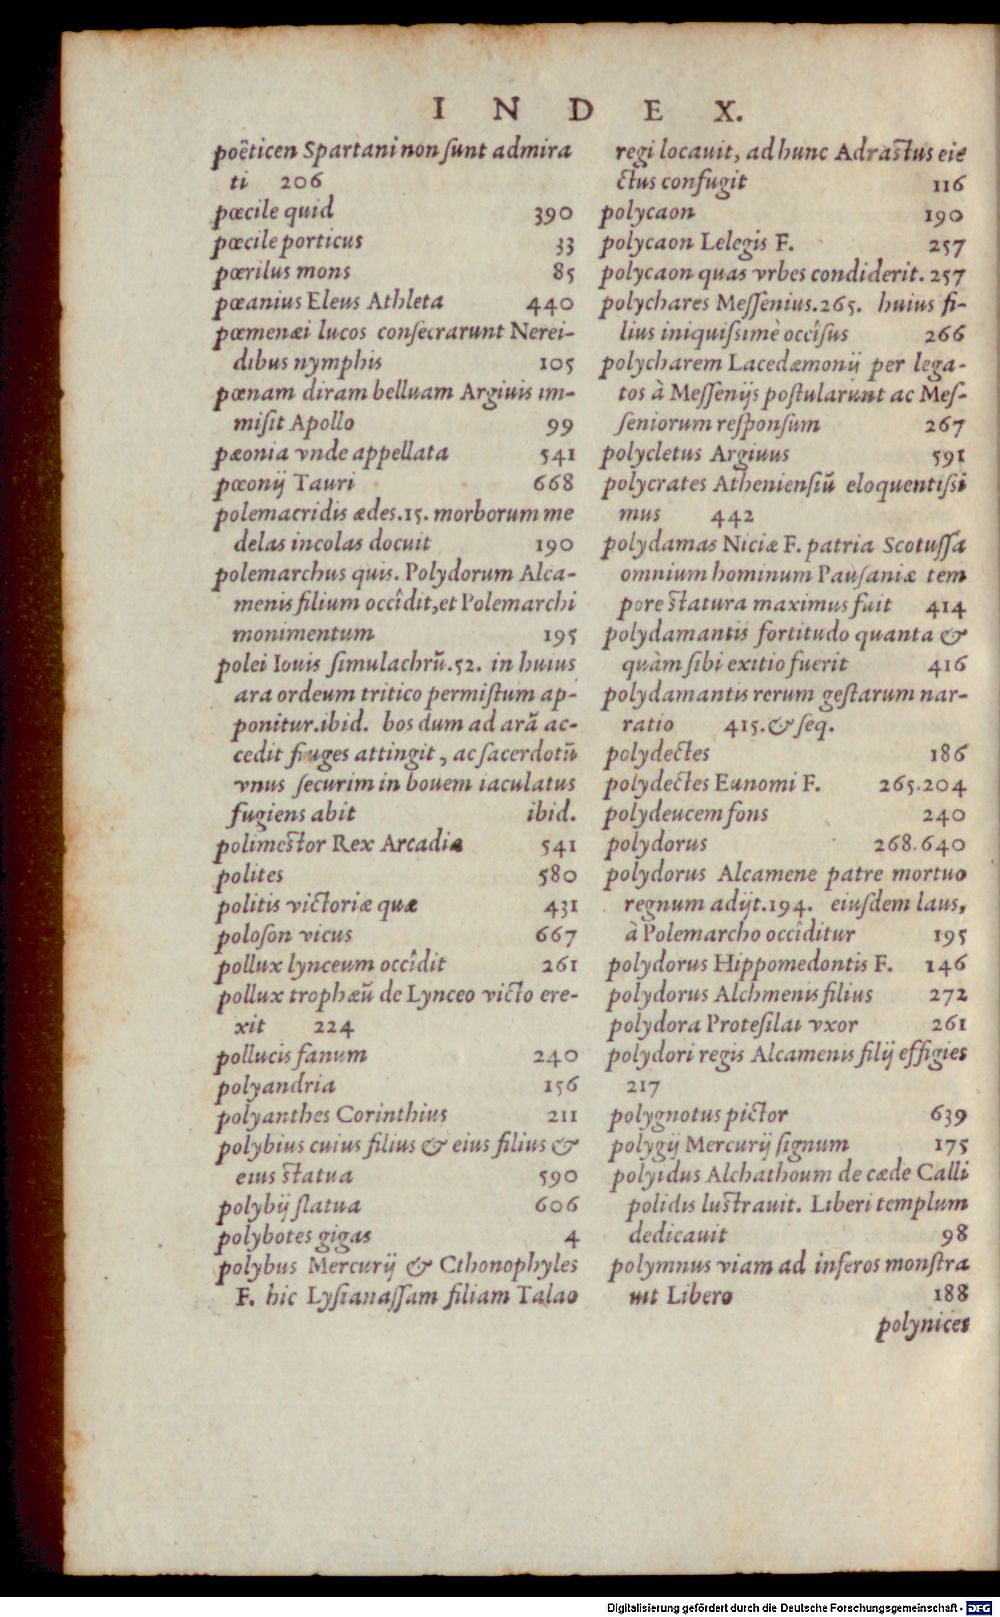 INDEX.
poëticen Spartani non ſunt admira
ti 206
pœcile quid 390
pœcile porticus 33
pœrilus mons 85
pœanius Eleus Athleta 440
pœmenæi lucos conſecrarunt Nerei-
dibus nymphis 105
pœnam diram belluam Argiuis im-
miſit Apollo 99
pæonia vnde appellata 541
pœonij Tauri 668
polemacridis ædes.15. morborum me
delas incolas docuit 190
polemarchus quis. Polydorum Alca-
menis filium occîdit,et Polemarchi
monimentum 195
polei Iouis ſimulachrũ.52. in huius
ara ordeum tritico permiſtum ap-
ponitur.ibid. bos dum ad arã ac-
cedit fruges attingit, ac ſacerdotũ
vnus ſecurim in bouem iaculatus
fugiens abit ibid.
polimestor Rex Arcadiæ 541
polites 580
politis victoriæ quæ 431
poloſon vicus 667
pollux lynceum occîdit 261
pollux trophæũ de Lynceo victo ere-
xit 224
pollucis fanum 240
polyandria 156
polyanthes Corinthius 211
polybius cuius filius & eius filius &
eius statua 590
polybij ſlatua 606
polybotes gigas 4
polybus Mercurij & Cthonophyles
F. hic Lyſianaſſam filiam Talao
regi locauit, ad hunc Adrastus eie
ctus confugit 116
polycaon 190
polycaon Lelegis F. 257
polycaon quas vrbes condiderit. 257
polychares Meſſenius.265. huius fi-
lius iniquiſsimè occîſus 266
polycharem Lacedæmonij per lega-
tos à Meſſenijs poſtularunt ac Meſ-
ſeniorum reſponſum 267
polycletus Argiuus 591
polycrates Athenienſiũ eloquentiſsi
mus 442
polydamas Niciæ F. patria Scotuſſa
omnium hominum Pauſaniæ tem
pore statura maximus fuit 414
polydamantis fortitudo quanta &
quàm ſibi exitio fuerit 416
polydamantis rerum geſtarum nar-
ratio 415.& ſeq.
polydectes 186
polydectes Eunomi F. 265.204
polydeucem fons 240
polydorus 268.640
polydorus Alcamene patre mortuo
regnum adijt.194. eiuſdem laus,
à Polemarcho occîditur 195
polydorus Hippomedontis F. 146
polydorus Alchmenis filius 272
polydora Proteſilai vxor 261
polydori regis Alcamenis filij effigies
217
polygnotus pictor 639
polygij Mercurij ſignum 175
polyidus Alchathoum de cæde Calli
polidis lustrauit. Liberi templum
dedicauit 98
polymnus viam ad inferos monſtra
uit Libero 188
polynices
Digitalisierung gefördert durch die Deutsche Forschungsgemeinschaft - DFG